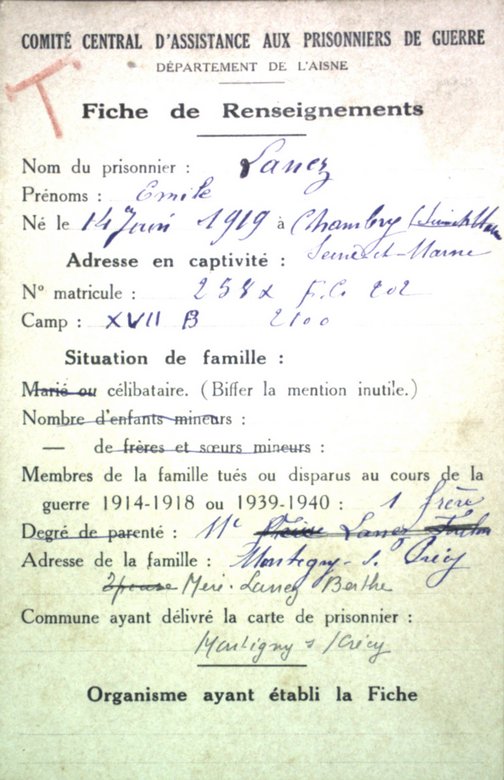 COMITÉ CENTRAL D'ASSISTANCE AUX PRISONNIERS DE GUERRE
DÉPARTEMENT DE L'AISNE
T
Fiche de Renseignements
Nom du prisonnier : Lanez
Prénoms : Emile
Né le 14 Juin 1919 à Chambry
Seine-et-Marne
Adresse en captivité :
N° matricule :
Camp : XVII B 2100
Situation de famille :
Marié ou célibataire. (Biffer la mention inutile.)
Nombre d'enfants mineurs :
— de frères et sœurs mineurs :
Membres de la famille tués ou disparus au cours de la
guerre 1914-1918 ou 1939-1940 : 1 frère
Degré de parenté : Mc Lanez
Adresse de la famille : Montigny-s. Crécy
Epouse Mère. Lanez Berthe
Commune ayant délivré la carte de prisonnier :
Montigny s Crécy
Organisme ayant établi la Fiche